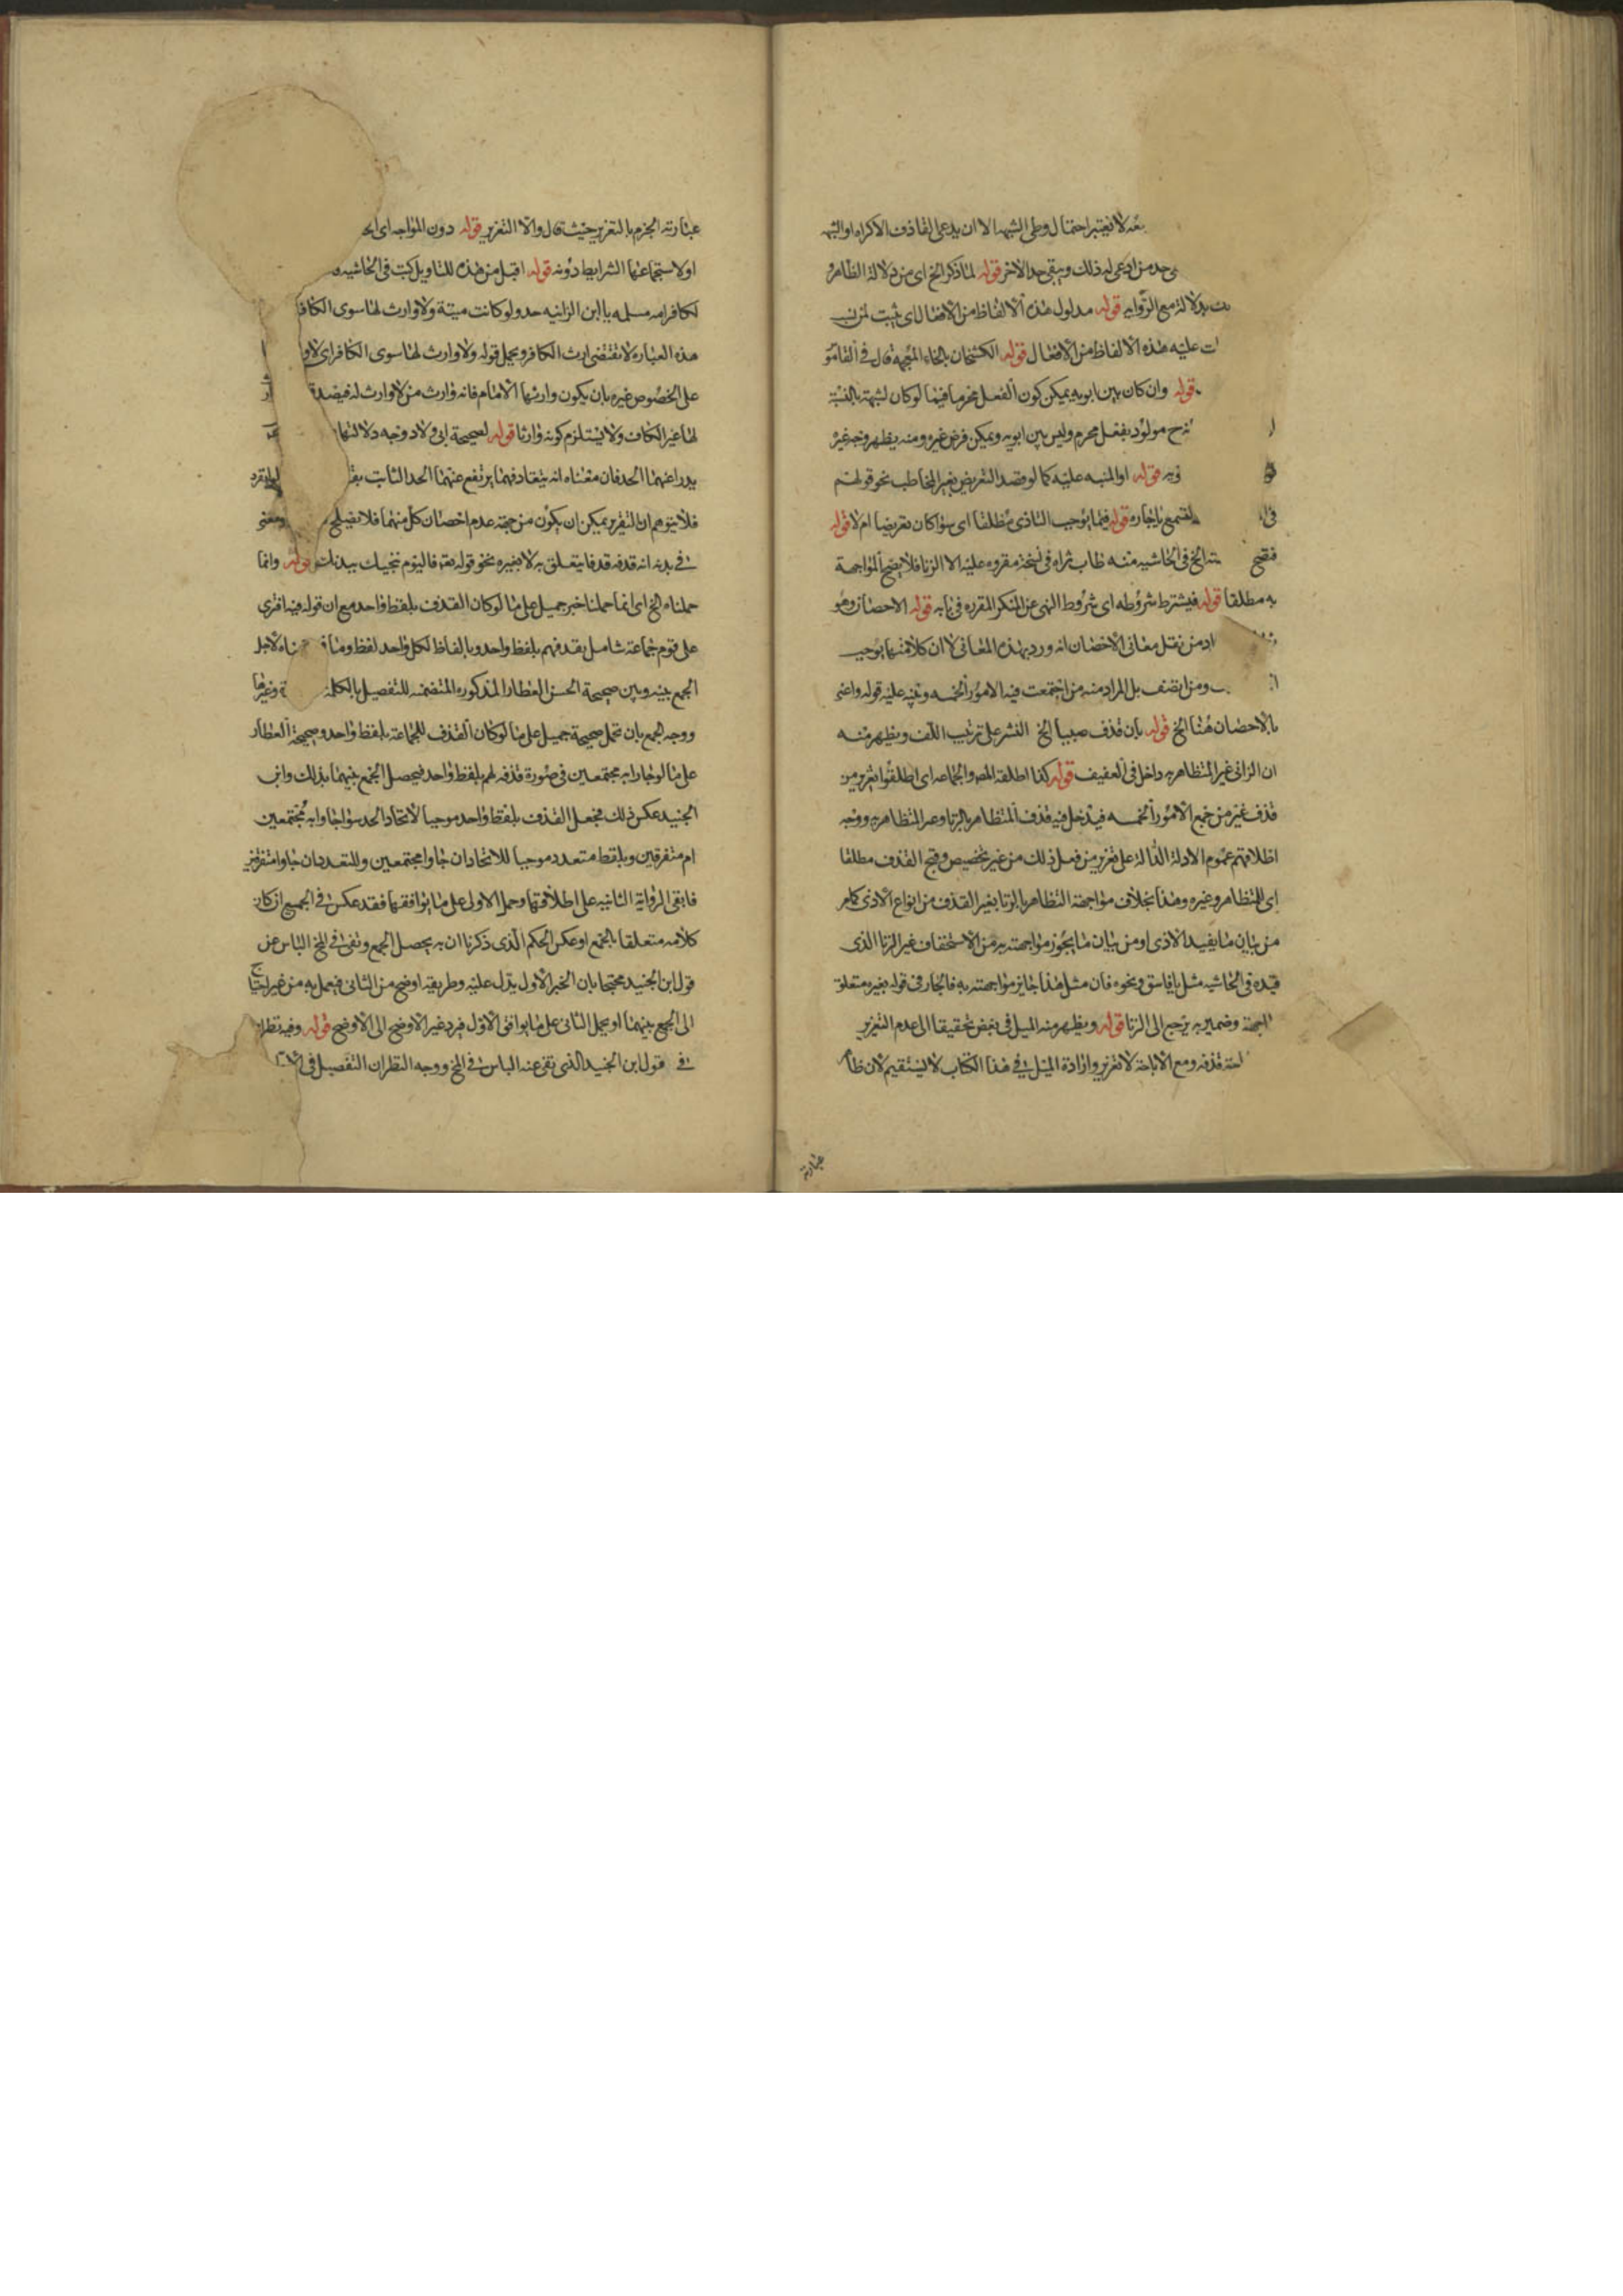 لا يعتبر احتمال وطي الشبهه الا ان يدعى القاذف الاكراه او الشبهه
حد من ادعى له ذلك ويبقى حد الاخر قوله لما ذكر الخ اى من دلالة الظاهر و
دلالة مع الروايه قوله مدلول هذه الالفاظ من الافعال اى يثبت لمن نسب
عليه هذه الالفاظ من الافعال قوله الكشخان بالخاء المعجمة قال فى القامو
قوله وان كان بين ابويه يمكن كون الفعل محرما فيما لو كان لشبهة بالنسبة
مولود بفعل محرم وليس بين ابويه ويمكن فرض غيره ومنه يظهر وجه غيره
قوله او المنبه عليه كما لو قصد التعريض بغير المخاطب نحو قولهم
قوله فيما يوجب التاذى مطلقا اى سواء كان تعريضا ام لا قوله
الخ فى الحاشيه منه طاب ثراه فى نسخة مقروه عليه الا الزنا فلا يصح المواجهة
به مطلقا قوله فيشترط شروطه اى شروط النهى عن المنكر المقرره فى بابه قوله الاحصان وهو
من نقل معانى الاحصان انه ورد بهذه المعانى لا ان كلا منها يوجب
ومن اتصف بل المراد منه من اجتمعت فيه الامور الخمسه ونبه عليه قوله واعنى
بالاحصان هنا الخ قوله بان قذف صبيا الخ النشر على ترتيب اللف ويظهر منه
ان الزانى غير المتظاهر به داخل فى العفيف قوله كذا اطلقه المص والجماعه اى اطلقوا تعزير من
قذف غير من جمع الامور الخمسه فيدخل فيه قذف المتظاهر بالزنا وغير المتظاهر به ووجه
اطلاقهم عموم الادلة الدالة على تعزير من فعل ذلك من غير تخصيص وقبح القذف مطلقا
اى للمتظاهر وغيره وهذا بخلاف مواجهة المتظاهر بالزنا بغير القذف من انواع الاذى كما مر
من بيان ما يفيد الاذى او من بيان ما يجوز مواجهته به من الاستخفاف غير الزنا الذى
قيده فى الحاشيه مثل يا فاسق ونحوه فان مثل هذا جايز مواجهته به فالجار فى قوله بغيره متعلق
وضمير به يرجع الى الزنا قوله ويظهر منه الميل فى بعض تحقيقا الى عدم التعزير
قذفه ومع الاباحة لا تعزير وارادة الميل فى هذا الكتاب لا يستقيم لان ظا
عبارته
عبارته الجزم بالتعزير حيث قال والا التعزير قوله دون المواجه اى
او لاستجماعها الشرايط دونه قوله اقبل من هذه للتاويل كتب فى الحاشيه
لكافر امه مسلمه يا ابن الزانيه حد ولو كانت ميتة ولا وارث لها سوى الكافر
هذه العباره لا تقتضى ارث الكافر ويحمل قوله ولا وارث لها سوى الكافر اى
على الخصوص غيره بان يكون وارثها الامام فانه وارث من لا وارث له فيصدق
لها غير الكافر ولا يستلزم كونه وارثا قوله لصحيحة ابى ولاد وجه دلالتها
يدرا عنهما الحد فان معناه انه بتقاذفهما يرتفع عنهما الحد الثابت
فلا يتوهم ان التعزير يمكن ان يكون من جهة عدم احصان كل منهما فلا يصلح ومعنى
فى بدنه انه قذفه قذفا يتعلق به لا بغيره نحو قوله تعه فاليوم ننجيك ببدنك قوله وانما
حملناه الخ اى انما حملنا خبر جميل على ما لو كان القذف بلفظ واحد مع ان قوله فيه افترى
على قوم جماعة شامل بقذفهم بلفظ واحد وبالفاظ لكل واحد لفظ لاجل
الجمع بينه وبين صحيحة الحسن العطار المذكوره المتضمنه للتفصيل بالكلمة وغيرها
ووجه الجمع بان تحمل صحيحة جميل على ما لو كان القذف للجماعة بلفظ واحد وصحيحة العطار
على ما لو جاءوا به مجتمعين فى صورة قذفه لهم بلفظ واحد فيحصل الجمع بينهما بذلك وابن
الجنيد عكس ذلك فجعل القذف بلفظ واحد موجبا لاتحاد الحد سواء جاءوا به مجتمعين
ام متفرقين وبلفظ متعدد موجبا للاتحاد ان جاءوا مجتمعين وللتعدد ان جاءوا متفرقين
فابقى الرواية الثانيه على اطلاقها وحمل الاولى على ما يوافقها فقد عكس فى الجميع ان كان
كلامه متعلقا بالجمع او عكس الحكم الذى ذكرنا ان به يحصل الجمع ونفى فى لمخ الباس عن
قول ابن الجنيد محتجا بان الخبر الاول يدل عليه وطريقه اوضح من الثانى فيعمل به من غير احتياج
الى الجمع بينهما او يحمل الثانى على ما يوافق الاول فيرد غير الاوضح الى الاوضح قوله وفيه نظر
فى قول ابن الجنيد الذى نفى عنه الباس فى لمخ ووجه النظر ان التفصيل فى